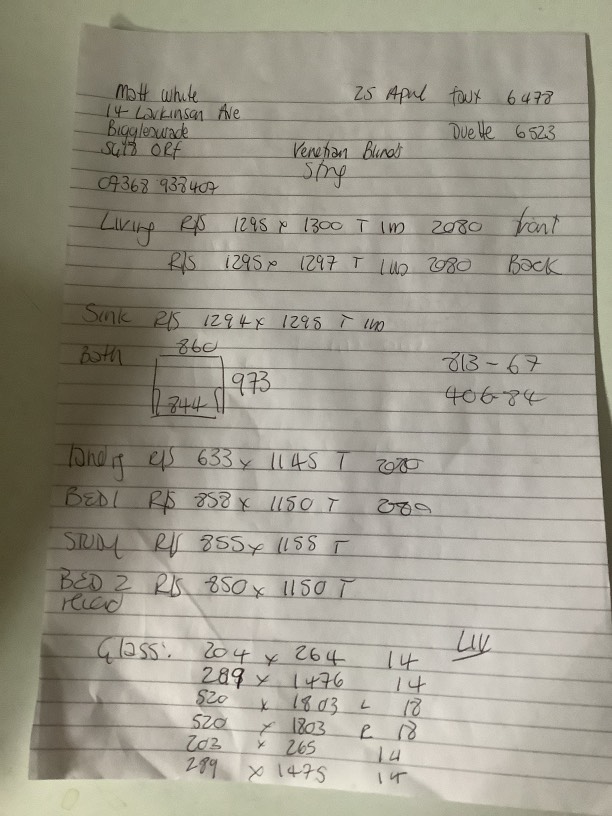 Matt White 25 April faux 6478
14 Larkinson Ave
Biggleswade Duette 6523
SG18 0RF Venetian Blinds
String
07368 938407
Living R/S 1295 x 1300 T 2080 front
R/S 1295 x 1297 T 2080 Back
Sink R/S 1294 x 1298 T
860
Bath 973 813-67
844 406-84
landig R/S 633 x 1145 T 2080
BED 1 R/S 858 x 1150 T 2080
STUDY R/S 855 x 1158 T
BED 2 R/S 850 x 1150 T
Glass: 204 x 264 14 LIV
289 x 1476 14
520 x 1803 L 18
520 x 1803 R 18
203 x 265 14
289 x 1475 14